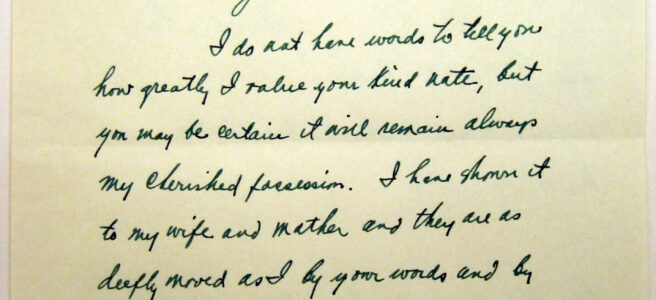 I do not have words to tell you
how greatly I value your kind note, but
you may be certain it will remain always
my cherished possession. I have shown it
to my wife and mother and they are as
deeply moved as I by your words and by